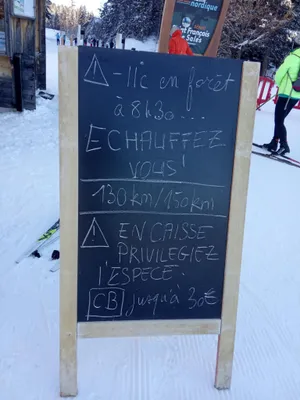 nordique
St François
de Sales
⚠ -11°c en forêt
à 8h30...
ECHAUFFEZ
VOUS!
130km/150km
⚠ EN CAISSE
PRIVILEGIEZ
l'ESPECE.
CB jusqu'à 30€